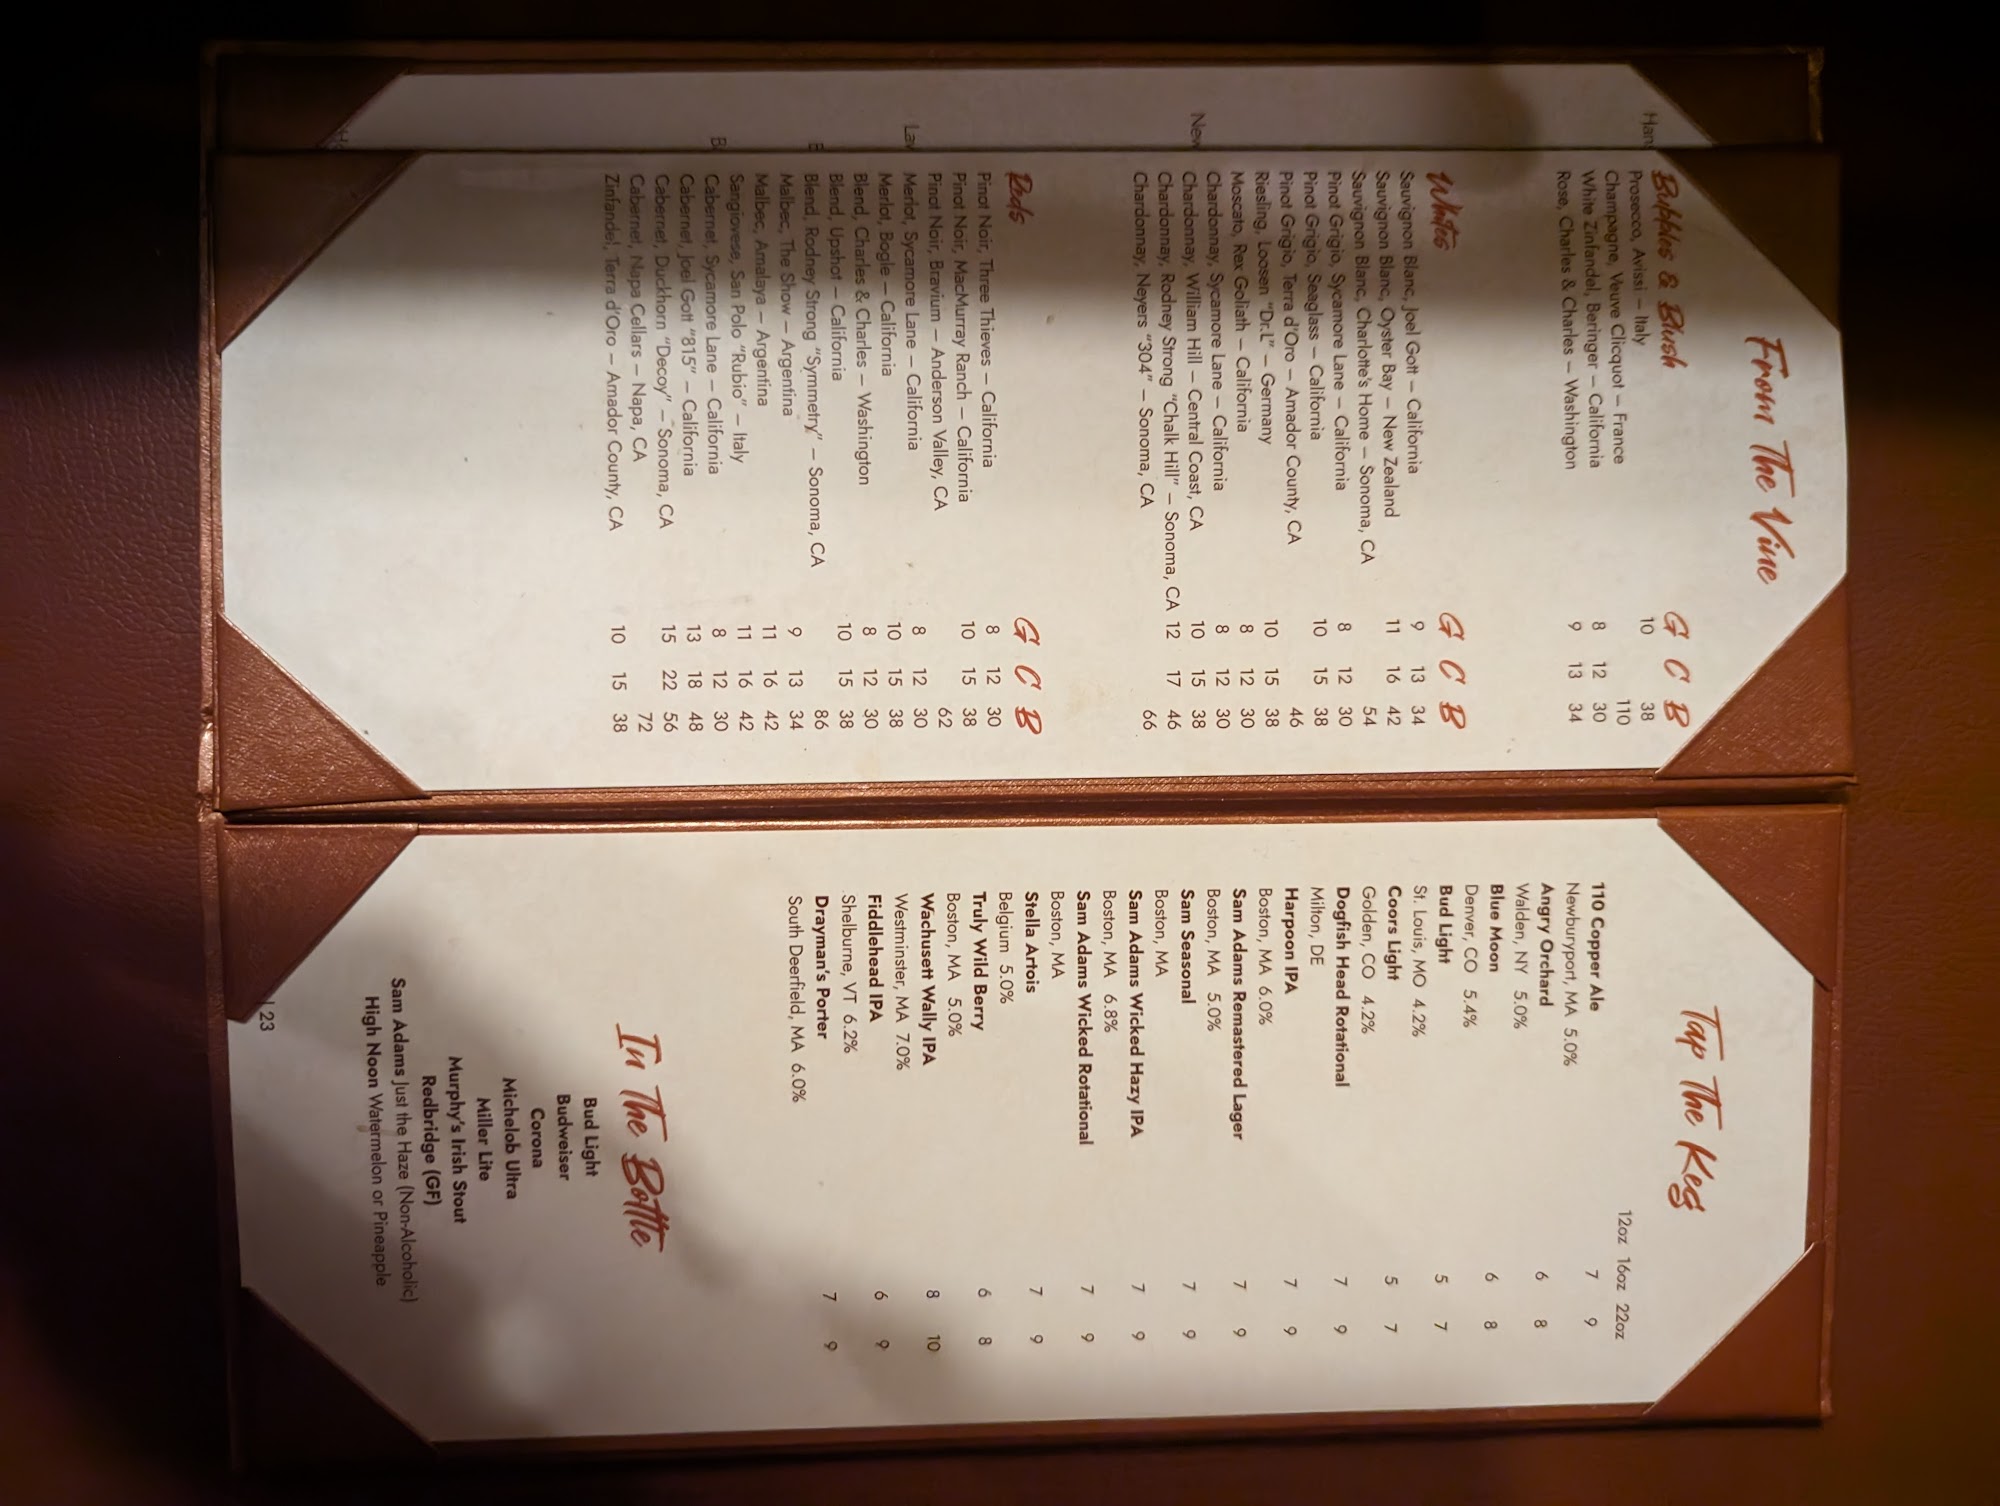 From The Vine
Bubbles & Blush G C B
Prosecco, Avissi – Italy 10 38
Champagne, Veuve Clicquot – France 110
White Zinfandel, Beringer – California 8 12 30
Rose, Charles & Charles – Washington 9 13 34
Whites G C B
Sauvignon Blanc, Joel Gott – California 9 13 34
Sauvignon Blanc, Oyster Bay – New Zealand 11 16 42
Sauvignon Blanc, Charlotte's Home – Sonoma, CA 54
Pinot Grigio, Sycamore Lane – California 8 12 30
Pinot Grigio, Seaglass – California 10 15 38
Pinot Grigio, Terra d'Oro – Amador County, CA 46
Riesling, Loosen "Dr.L" – Germany 10 15 38
Moscato, Rex Goliath – California 8 12 30
Chardonnay, Sycamore Lane – California 8 12 30
Chardonnay, William Hill – Central Coast, CA 10 15 38
Chardonnay, Rodney Strong "Chalk Hill" – Sonoma, CA 12 17 46
Chardonnay, Neyers "304" – Sonoma, CA 66
Reds G C B
Pinot Noir, Three Thieves – California 8 12 30
Pinot Noir, MacMurray Ranch – California 10 15 38
Pinot Noir, Bravium – Anderson Valley, CA 62
Merlot, Sycamore Lane – California 8 12 30
Merlot, Bogle – California 10 15 38
Blend, Charles & Charles – Washington 8 12 30
Blend, Upshot – California 10 15 38
Blend, Rodney Strong "Symmetry" – Sonoma, CA 86
Malbec, The Show – Argentina 9 13 34
Malbec, Amalaya – Argentina 11 16 42
Sangiovese, San Polo "Rubio" – Italy 11 16 42
Cabernet, Sycamore Lane – California 8 12 30
Cabernet, Joel Gott "815" – California 13 18 48
Cabernet, Duckhorn "Decoy" – Sonoma, CA 15 22 56
Cabernet, Napa Cellars – Napa, CA 72
Zinfandel, Terra d'Oro – Amador County, CA 10 15 38
Tap The Keg
12oz 16oz 22oz
110 Copper Ale 7 9
Newburyport, MA 5.0%
Angry Orchard 6 8
Walden, NY 5.0%
Blue Moon 6 8
Denver, CO 5.4%
Bud Light 5 7
St. Louis, MO 4.2%
Coors Light 5 7
Golden, CO 4.2%
Dogfish Head Rotational 7 9
Milton, DE
Harpoon IPA 7 9
Boston, MA 6.0%
Sam Adams Remastered Lager 7 9
Boston, MA 5.0%
Sam Seasonal 7 9
Boston, MA
Sam Adams Wicked Hazy IPA 7 9
Boston, MA 6.8%
Sam Adams Wicked Rotational 7 9
Boston, MA
Stella Artois 7 9
Belgium 5.0%
Truly Wild Berry 6 8
Boston, MA 5.0%
Wachusett Wally IPA 8 10
Westminster, MA 7.0%
Fiddlehead IPA 6 9
Shelburne, VT 6.2%
Drayman's Porter 7 9
South Deerfield, MA 6.0%
In The Bottle
Bud Light
Budweiser
Corona
Michelob Ultra
Miller Lite
Murphy's Irish Stout
Redbridge (GF)
Sam Adams Just the Haze (Non-Alcoholic)
High Noon Watermelon or Pineapple
| 23